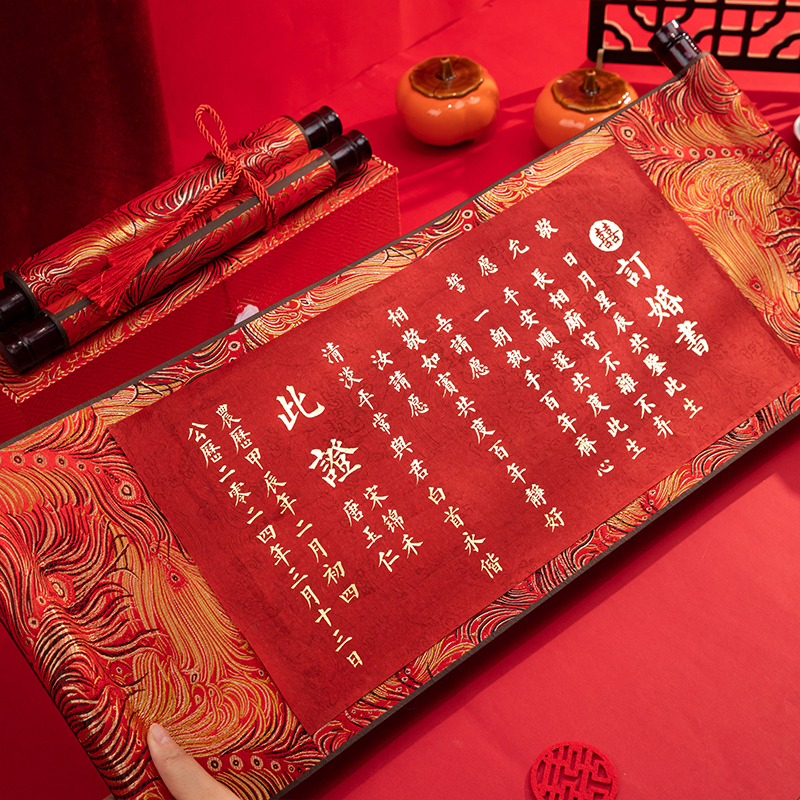 囍
訂婚書
敬 日月星辰共鑒此生
允 長相廝守不離不弃
愿 平安順遂共度此生
誓 一朝執手百年齊心
吾請愿
相敬如賓共度百年靜好
汝請愿
清淡平常與君白首永偕
宋錦禾
唐玉仁
此證
農歷甲辰年二月初四
公歷二零二四年三月十三日